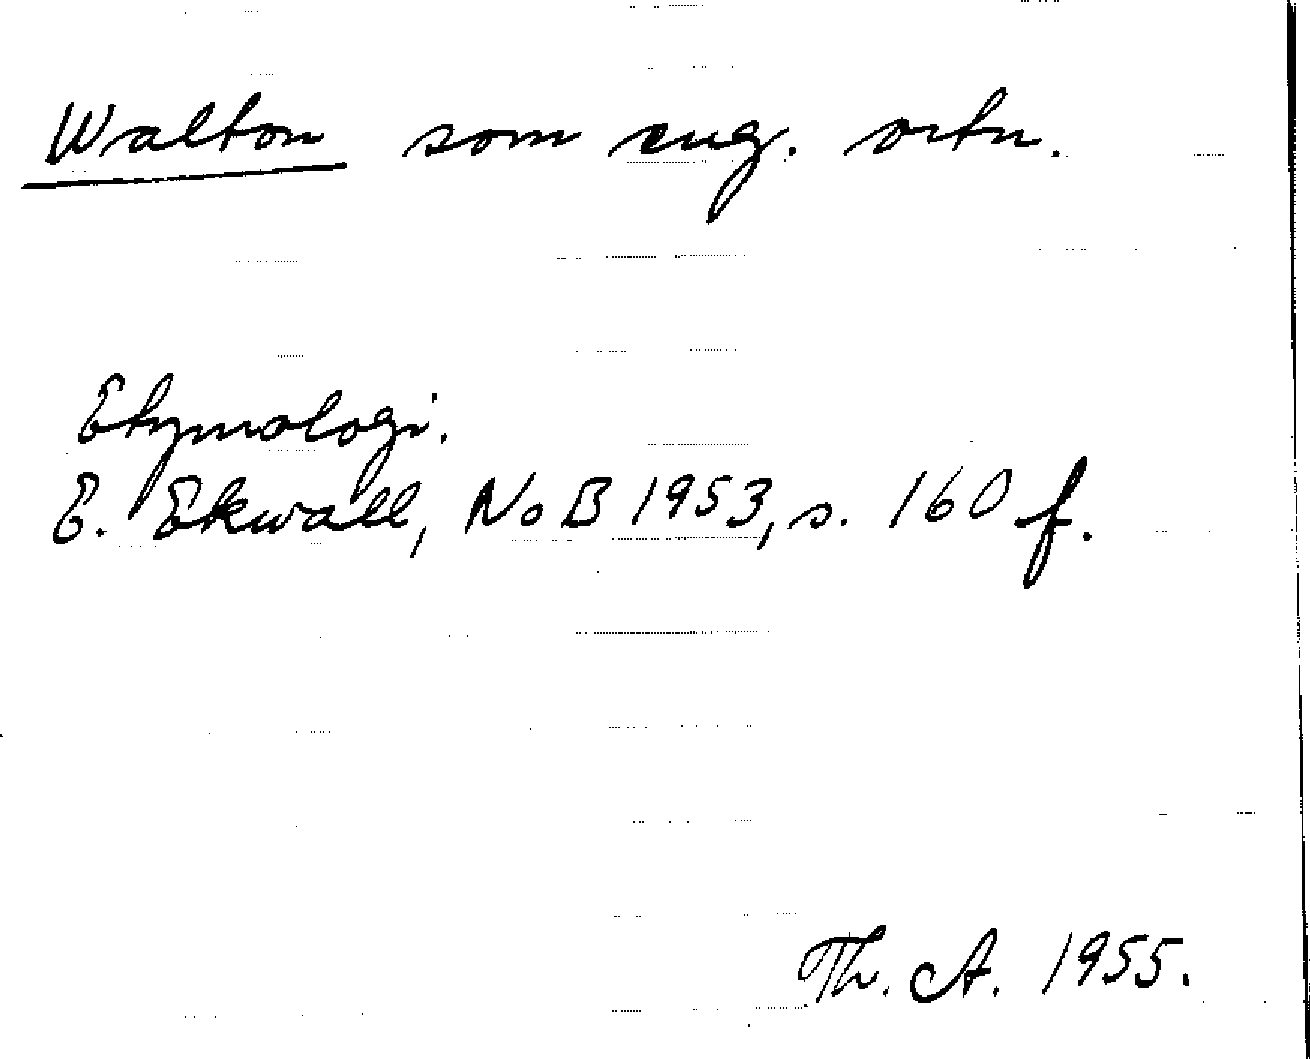 Walton som eng. ortn.
Etymologi.
E. Ekwall, NoB 1953, s. 160 f.
Th. A. 1955.